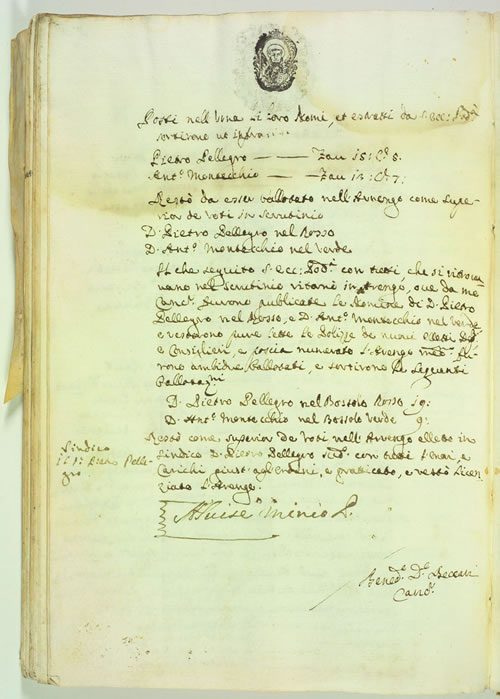 Posti nell'Urna li loro Nomi, et estratti da S: Ecc: Pod:à
sortirono ut infra
Pietro Pellegro — — Zau 15: C: 8.
Ant:o Montecchio — Zau 13: C: 7:
Restò da esser ballotato nell'Arengo come supe-
rior de Voti in Scrutinio
D. Pietro Pellegro nel Rosso
D. Ant:o Montecchio nel Verde
Il che seguito S. Ecc: Pod:à con tutti, che si ritrova-
vano nel Scrutinio in Arengo, oue da me
Canc:r furono publicate le Nomine di D. Pietro
Pellegro nel Rosso, e D. Ant:o Montecchio nel verde
e restarono pure lette le Polizze de nuovi eletti
e Consiglieri, e poscia numerato l'Arengo fu-
rono ambidue ballotati, e sortirono le seguenti
Ballotazni
D. Pietro Pellegro nel Bossolo Rosso 19:
D. Ant:o Montecchio nel Bossolo Verde 9:
Sindico
il S: Piero Pelle-
gro
Restò come superior de Voti nell'Arengo elletto in
Sindico D. Pietro Pellegro Sud:o con tutti honori, e
Carichi giusto agl'ordeni, e praticato, e restò licen-
ziato l'Arengo.
Aluise Minio P.
Bened:o De Beccari
Canc:r